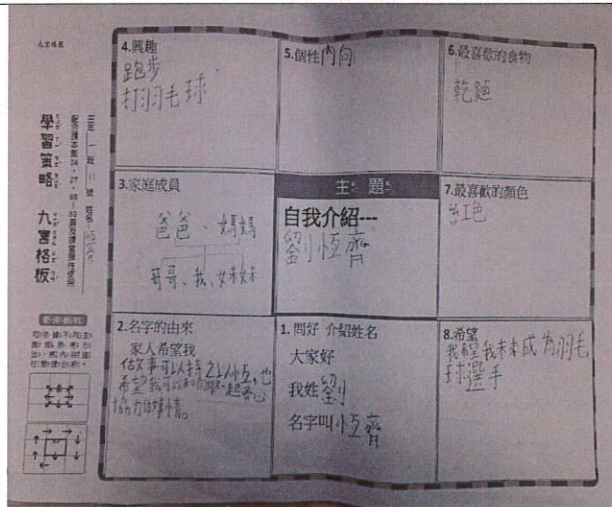 九宮格板
4.興趣
跑步
打羽毛球
5.個性內向
6.最喜歡的食物
乾麵
3.家庭成員
爸爸、媽媽
哥哥、我、妹妹
主題
自我介紹---
劉恆齊
7.最喜歡的顏色
紅色
2.名字的由來
家人希望我
做事可以持之以恆,也
希望我可以和
協力做事情。
1. 問好 介紹姓名
大家好
我姓劉
名字叫恆齊
8.希望
我希望我未來成為羽毛
球選手
學習策略 九宮格板
三年一班11號 姓名